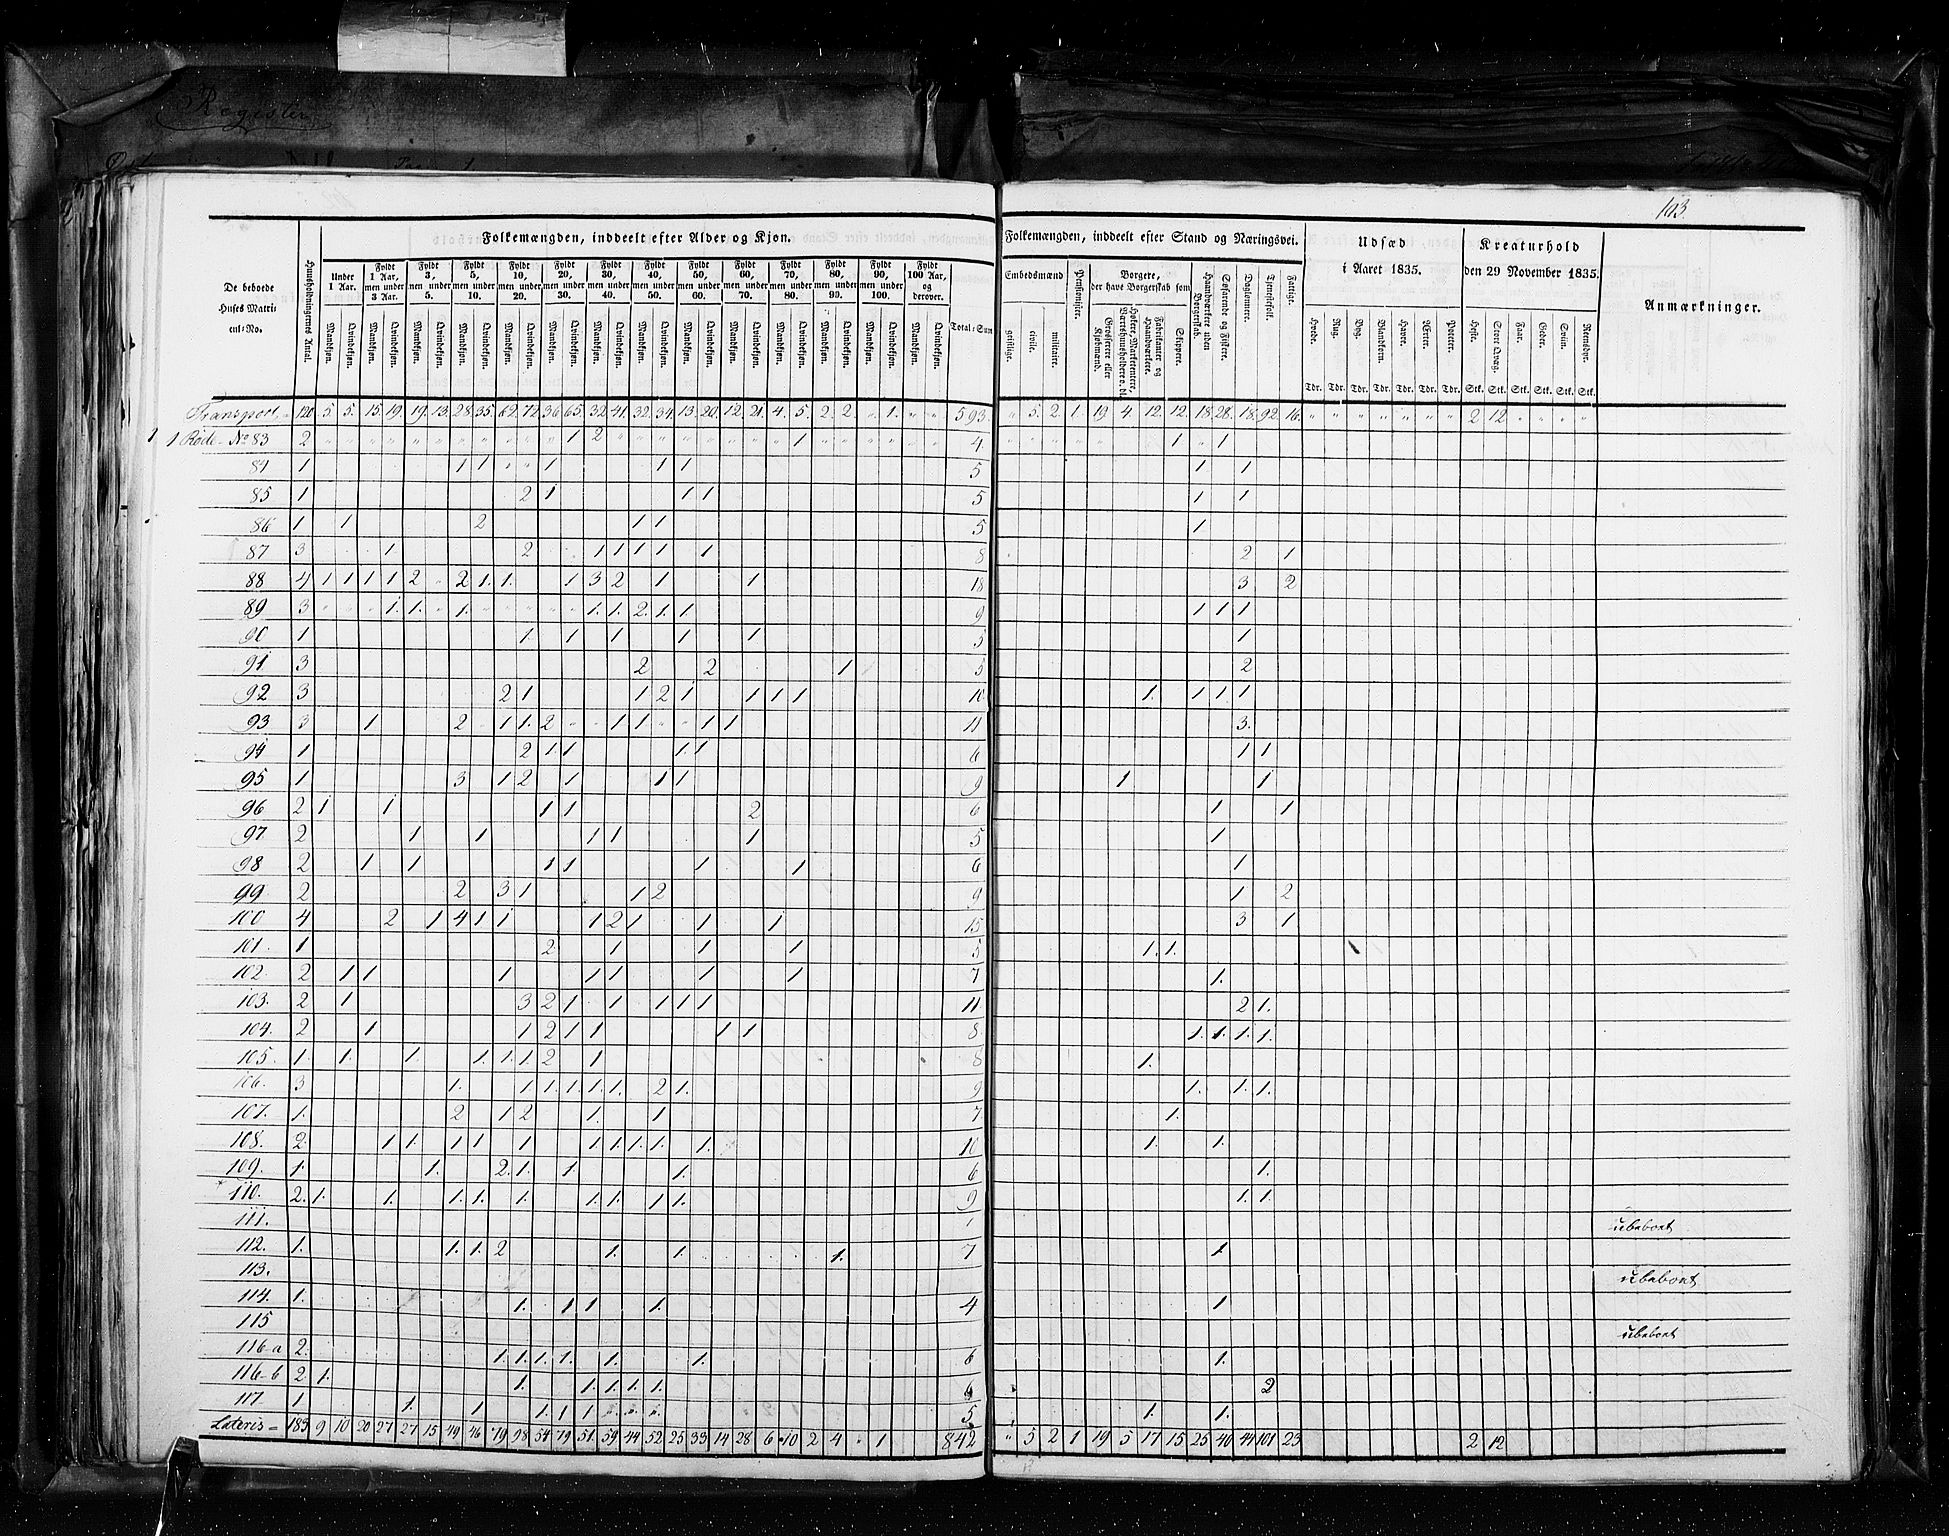 Register
103.
Folkemængden, inddeelt efter Alder og Kjøn.
Folkemængden, inddeelt efter Stand og Næringsvei.
Udsæd i Aaret 1835.
Kreaturhold den 29 November 1835.
Anmærkninger.
De beboede Huses Matricul-No.
Huusholdningernes Antal.
Under 1 Aar.
Fyldt 1 Aar, men under 3 Aar.
Fyldt 3, men under 5.
Fyldt 5, men under 10.
Fyldt 10, men under 20.
Fyldt 20, men under 30.
Fyldt 30, men under 40.
Fyldt 40, men under 50.
Fyldt 50, men under 60.
Fyldt 60, men under 70.
Fyldt 70, men under 80.
Fyldt 80, men under 90.
Fyldt 90, men under 100.
Fyldt 100 Aar, og derover.
Total-Sum
Mandkjøn. Qvindekjøn.
Embedsmænd
geistlige. civile. militaire.
Pensionister.
Borgere, der have Borgerskab som
Grosserere eller Kjøbmænd.
Høkere, Marketentere, Værtshuusholdere o. dl.
Fabrikanter og Haandværkere.
Skippere.
Haandværkere uden Borgerskab.
Søfarende og Fiskere.
Daglønnere.
Tjenestefolk.
Fattige.
Hvede. Rug. Byg. Blandkorn. Havre. Ærter. Poteter.
Tdr. Tdr. Tdr. Tdr. Tdr. Tdr. Tdr.
Heste. Stort Qvæg. Faar. Geder. Sviin. Reensdyr.
Stk. Stk. Stk. Stk. Stk. Stk.
Transport 120 5 5 15 19 19 13 28 35 62 72 36 65 32 41 32 34 13 20 12 21 4 5 2 2 " 1 " " 593 " 5 2 1 19 4 12 12 18 28 18 92 16 " " " " " " " 2 12 " " " "
1 Rode No 83 2 1 2 1 4 1 1
84 1 1 1 1 1 1 5 1 1
85 1 2 1 1 1 5 1 1
86 1 1 2 1 1 5 1
87 3 1 2 1 1 1 1 1 8 2 1
88 4 1 1 1 1 2 2 1 1 1 3 2 1 1 18 3 2
89 3 1 1 1 1 1 2 1 1 9 1 1 1
90 1 1 1 1 1 1 5 1
91 3 2 2 1 5 2
92 3 2 1 1 2 1 1 1 1 10 1 1 1 1
93 3 1 2 1 1 2 1 1 1 1 11 3
94 1 2 1 1 1 1 6 1 1
95 1 3 1 2 1 1 1 9 1 1
96 2 1 1 1 1 2 6 1 1
97 2 1 1 1 1 1 5 1
98 2 1 1 1 1 1 1 6 1
99 2 2 3 1 1 2 9 1 2
100 4 2 1 4 1 1 1 2 1 1 1 15 3 1
101 1 2 1 1 1 5 1 1
102 2 1 1 1 1 1 1 1 7 1
103 2 1 3 2 1 1 1 1 1 11 2 1
104 2 1 1 2 1 1 1 1 8 1 1 1 1
105 1 1 1 1 1 1 2 1 8 1
106 3 1 1 1 1 1 1 2 1 9 1 1 1
107 1 2 1 2 1 1 7 1
108 2 1 1 1 1 1 1 1 1 1 1 10 1 1
109 1 1 2 1 1 1 6 1
110 2 1 1 1 1 1 1 1 1 1 9 1 1
111 ubeboet
112 1 1 1 2 1 1 1 7 1
113 ubeboet
114 1 1 1 1 1 4 1
115 ubeboet
116-a 2 1 1 1 1 1 1 6 1
116-b 2 1 1 1 1 1 1 6 2
117 1 1 1 1 1 1 5 1 1
Lateris = 183 9 10 20 27 27 15 49 46 79 98 54 79 51 59 44 52 25 33 14 28 6 10 2 4 " 1 842 " 5 2 1 19 5 17 15 25 40 44 101 23 2 12